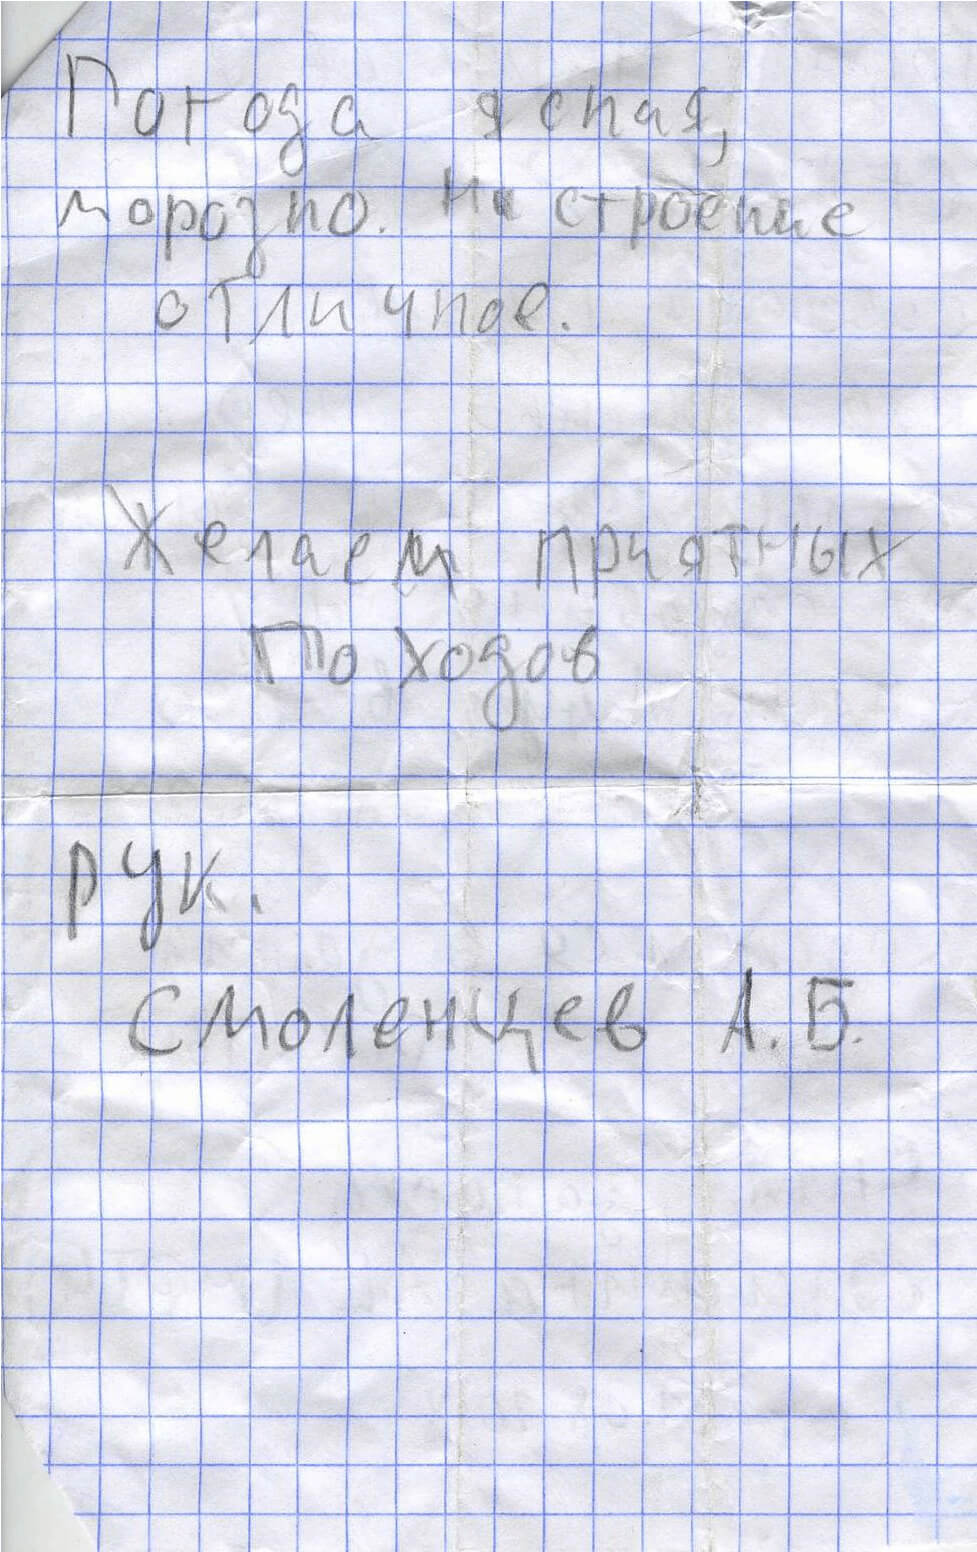 Погода ясная,
морозно. Настроение
отличное.
Желаем приятных
Походов
рук.
Смоленцев А.Б.